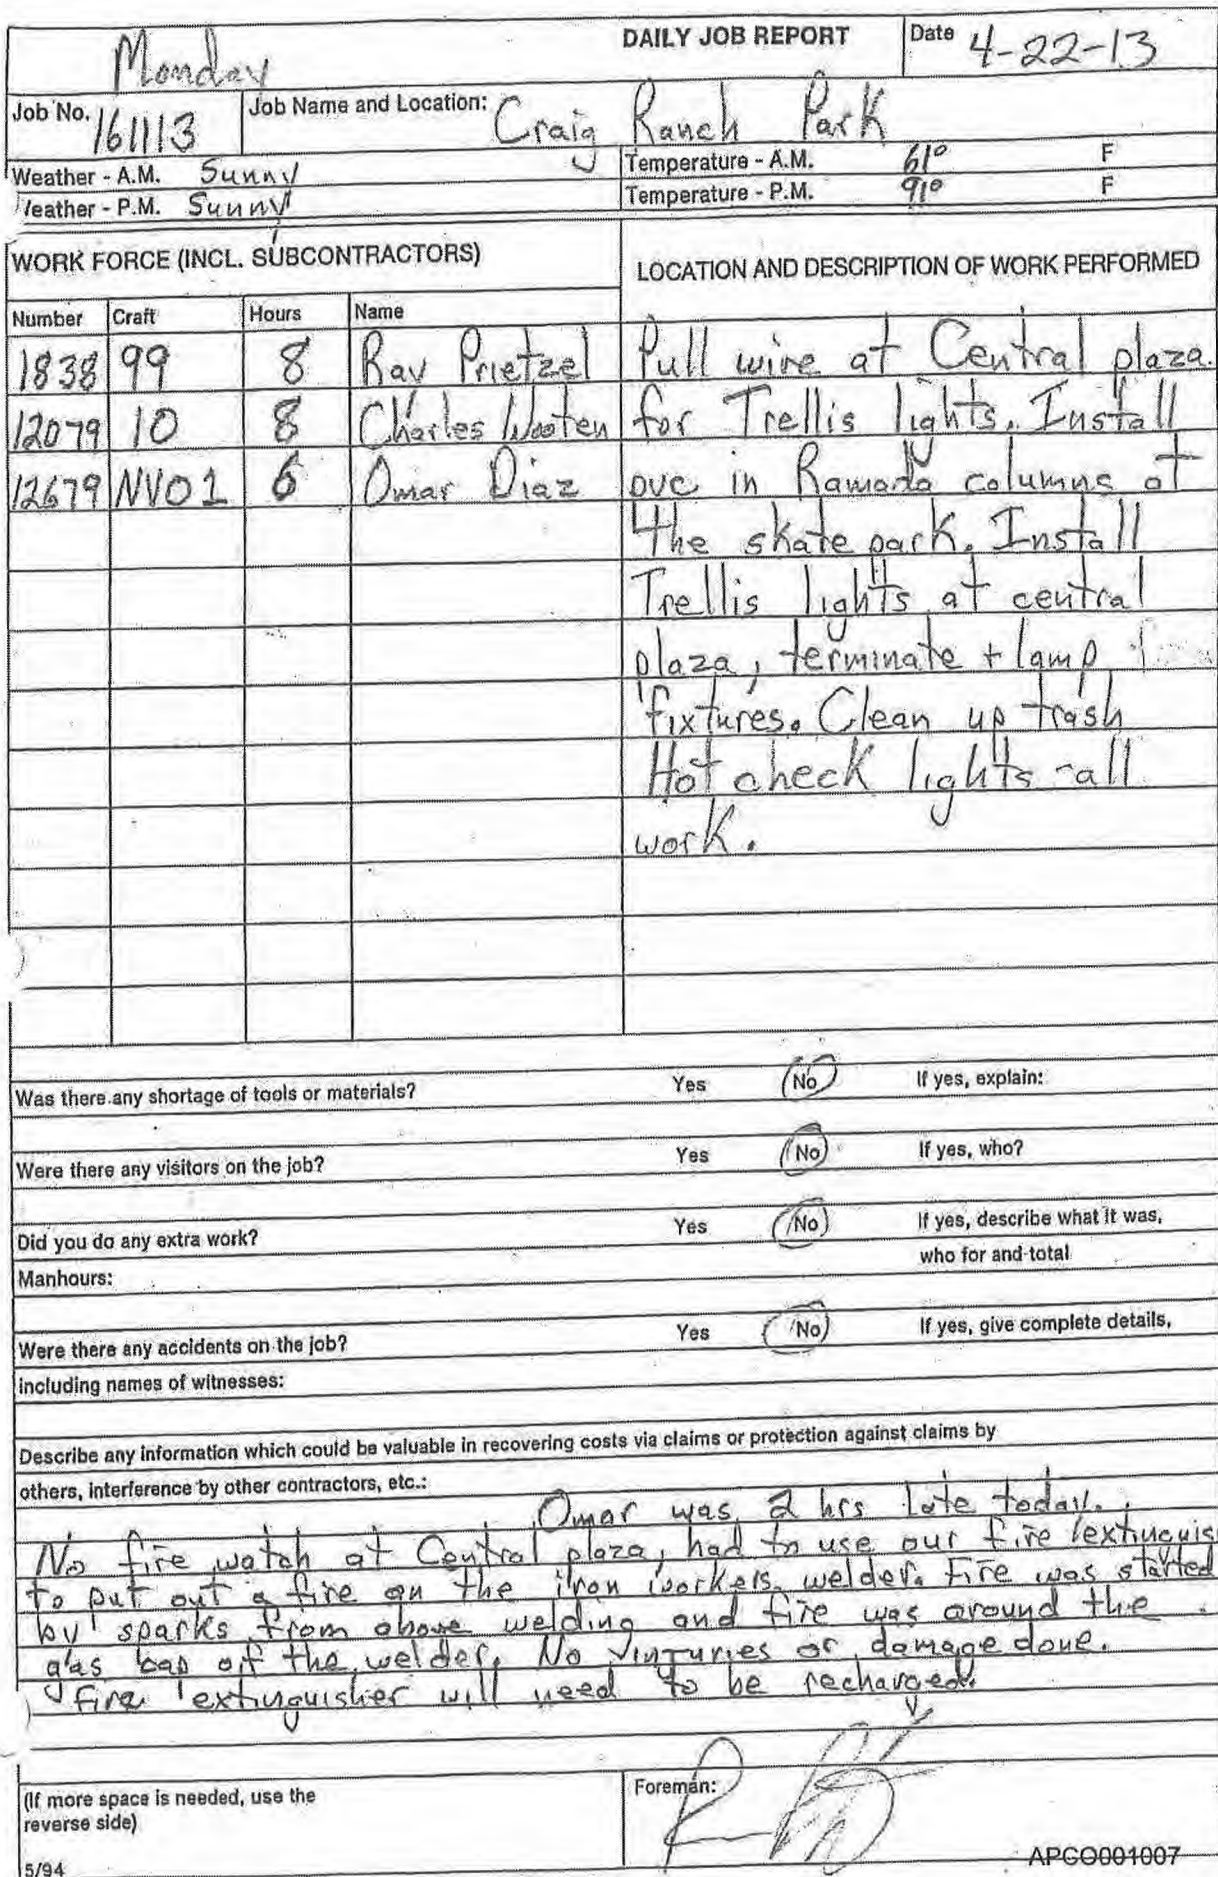 DAILY JOB REPORT
Date 4-22-13
Monday
Job No. 161113
Job Name and Location: Craig Ranch Park
Weather - A.M. Sunny
Temperature - A.M. 61° F
Weather - P.M. Sunny
Temperature - P.M. 91° F
WORK FORCE (INCL. SUBCONTRACTORS)
LOCATION AND DESCRIPTION OF WORK PERFORMED
Number Craft Hours Name
1838 99 8 Ray Prietzel
12079 10 8 Charles Wooten
12679 NV01 6 Omar Diaz
Pull wire at Central plaza.
for Trellis lights. Install
pvc in Ramada columns at
the skate park. Install
Trellis lights at central
plaza, terminate + lamp
fixtures. Clean up trash
Hot check lights - all
work.
Was there any shortage of tools or materials? Yes No If yes, explain:
Were there any visitors on the job? Yes No If yes, who?
Did you do any extra work? Yes No If yes, describe what it was,
who for and total
Manhours:
Were there any accidents on the job? Yes No If yes, give complete details,
including names of witnesses:
Describe any information which could be valuable in recovering costs via claims or protection against claims by
others, interference by other contractors, etc.:
Omar was 2 hrs late today.
No fire watch at Central plaza, had to use our fire extinguis
to put out a fire on the iron workers welder. Fire was started
by sparks from above welding and fire was around the
gas cap of the welder. No injuries or damage done.
fire extinguisher will need to be recharged.
(If more space is needed, use the
reverse side)
5/94
Foreman:
APCO001007